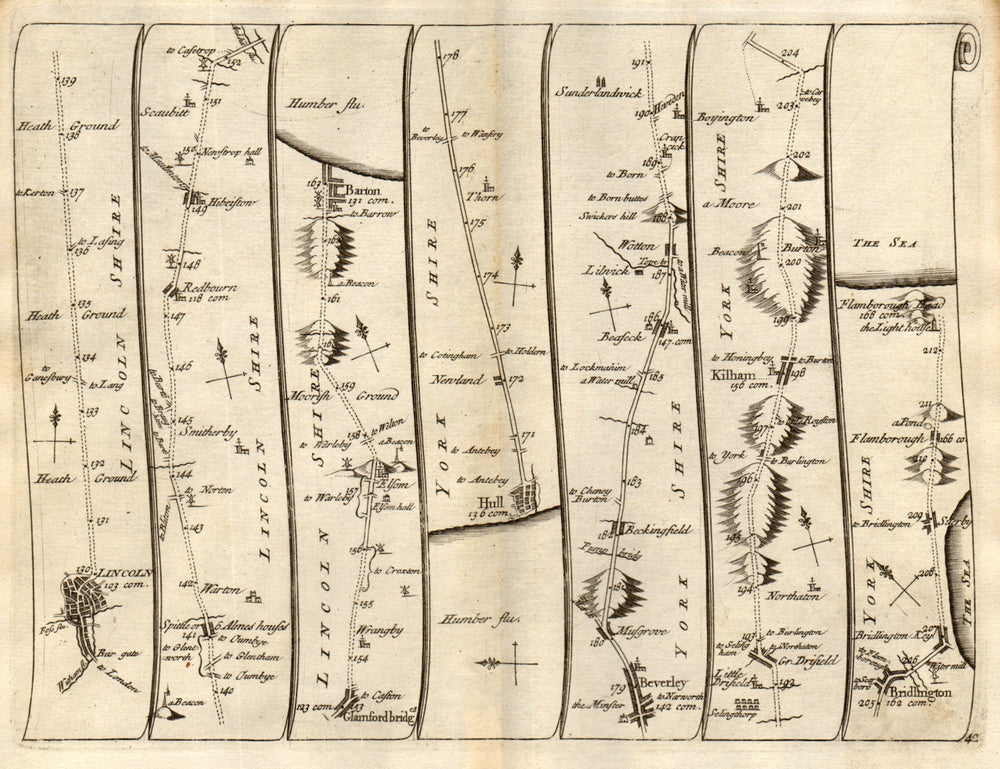 139
Heath Ground
138
to Kerton
137
to Lasing
136
135
Heath Ground
134
to Gansbury
to Lang
133
132
Heath Ground
131
130
LINCOLN
103 com.
Foss flu.
Bar gate
Witham flu.
to London
LINCOLN SHIRE
to Castrop
152
151
Scaubitt
150
Newstrop hall
Hibeiston
149
148
Redbourn
118 com
147
146
145
Smitherby
144
to Norton
143
142
Warton
Spittle or
6 Almes houses
141
to Oumbye
to Glentham
to Oumbye
140
a Beacon
LINCOLN SHIRE
Humber flu.
163
Barton
131 com.
to Barrow
162
a Beacon
161
160
159
Moorish Ground
158
to Wilton
a Beacon
to Warleby
Elsom
157
to Warleby
Elsom hall
156
to Croxton
155
Wrangby
154
to Caston
123 com.
153
Glamford bridges
LINCOLN SHIRE
178
177
to Beverley
to Wansry
176
Thorn
175
174
173
to Cotingham
to Holdern
Newland
172
171
to Antebey
to Antebey
Hull
136 com.
Humber flu.
YORK SHIRE
191
Sunderlandwick
190
Cranswick
189
to Born
to Born buttes
Swickers hill
188
Wotton
Lilnwick
187
186
Beafeck
147 com
to Lockmahim
185
a Water mill
184
183
to Cheney Burton
182
Beckingfield
181
Musgrove
180
179
Beverley
to Narworth
the Minster
142 com.
YORK SHIRE
204
203
Boyington
202
a Moore
201
Beacon
Burton
200
199
to Honingbey
to Burton
Kilham
198
156 com.
197
to York
to Burlington
196
195
194
Northaton
193
to Burlington
to Northaton
Gr. Drifield
Little Drifield
192
Selingthorp
YORK SHIRE
THE SEA
Flamborough Head
168 com.
the Light house
212
211
a Pond
Flamborough
166 co.
210
to Bridlington
209
208
207
Bridlington Key
206
Water mill
Bridlington
205
162 com.
THE SEA
YORK SHIRE